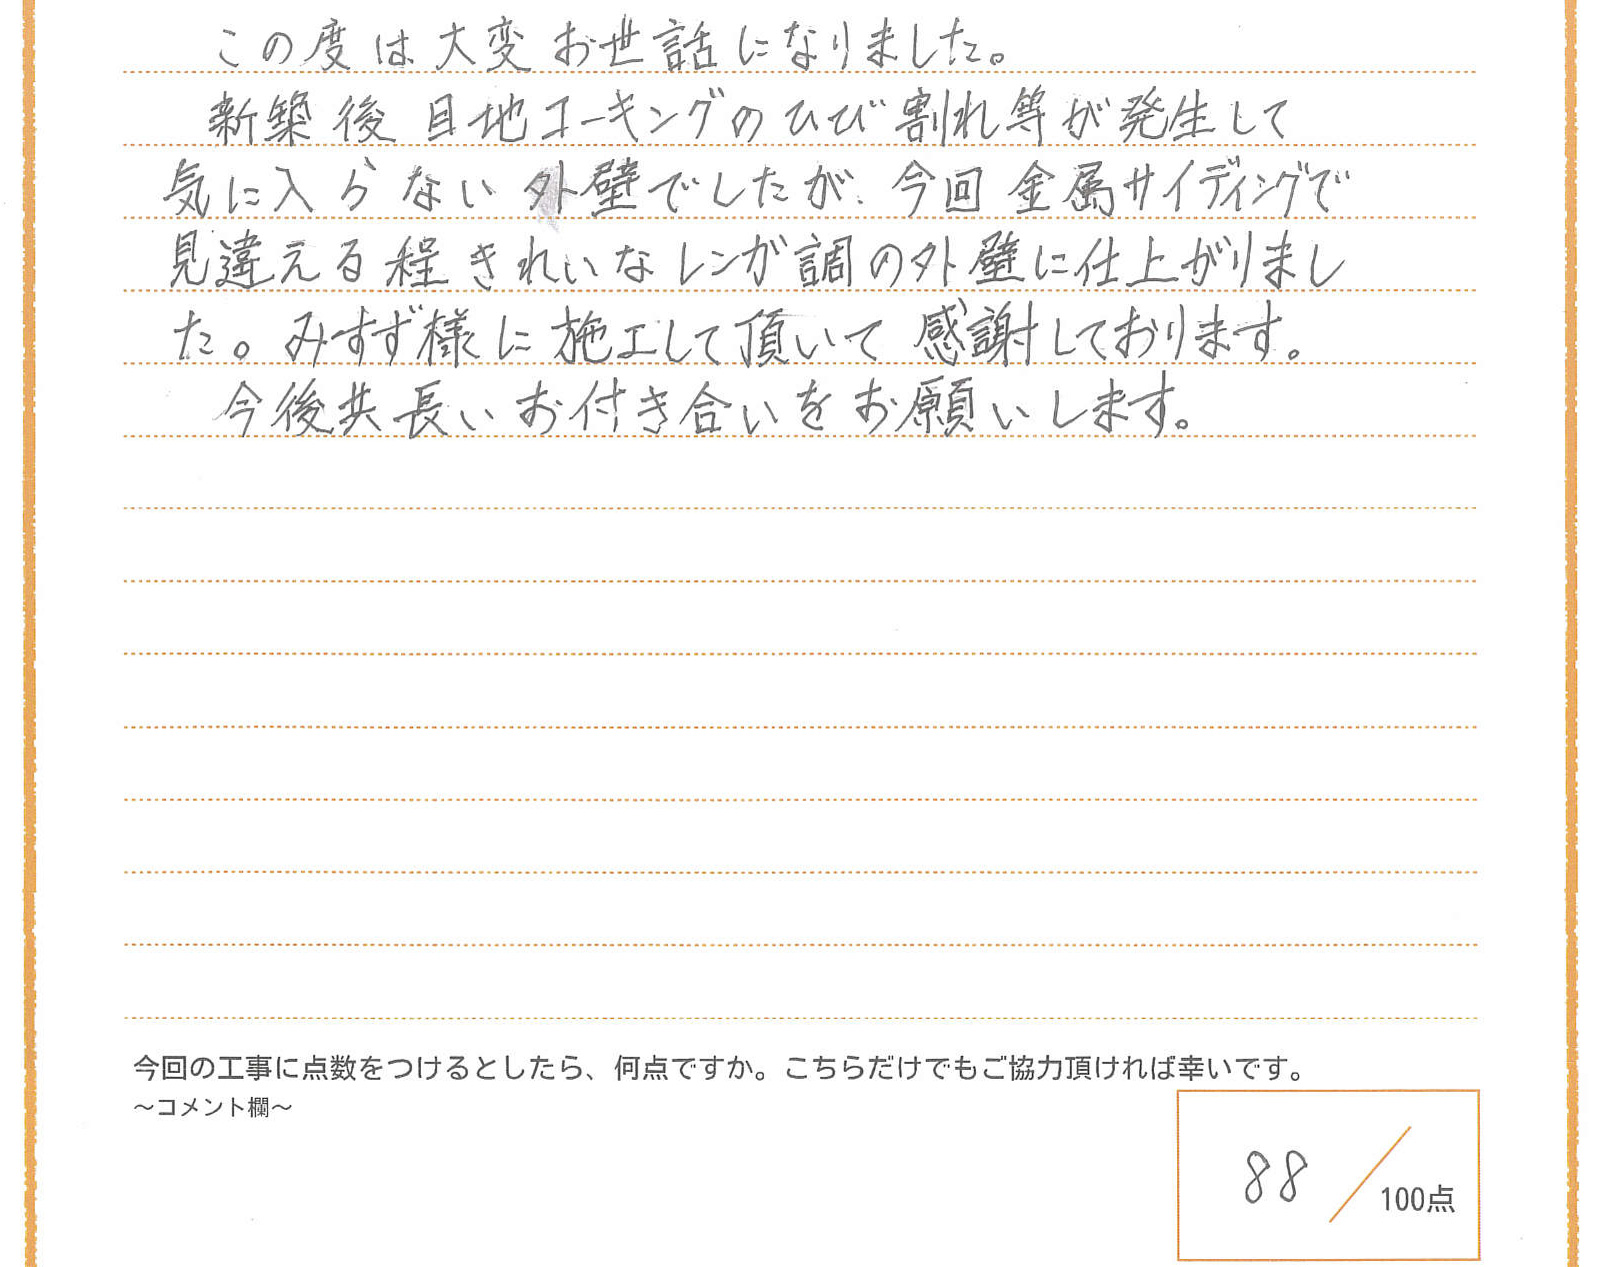 この度は大変お世話になりました。
新築後目地コーキングのひび割れ等が発生して
気に入らない外壁でしたが、今回金属サイディングで
見違える程きれいなレンガ調の外壁に仕上がりまし
た。みすず様に施工して頂いて感謝しております。
今後共長いお付き合いをお願いします。
今回の工事に点数をつけるとしたら、何点ですか。こちらだけでもご協力頂ければ幸いです。
～コメント欄～
88／100点